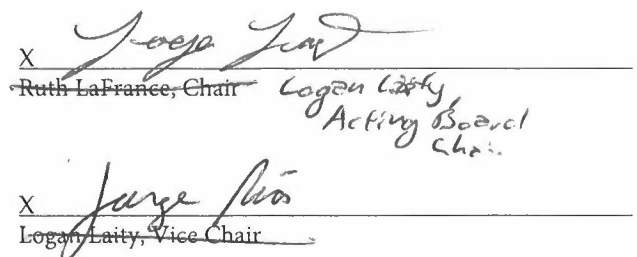 X
Ruth LaFrance, Chair Logan Laity,
Acting Board
Chair
X Jorge Rios
Logan Laity, Vice Chair